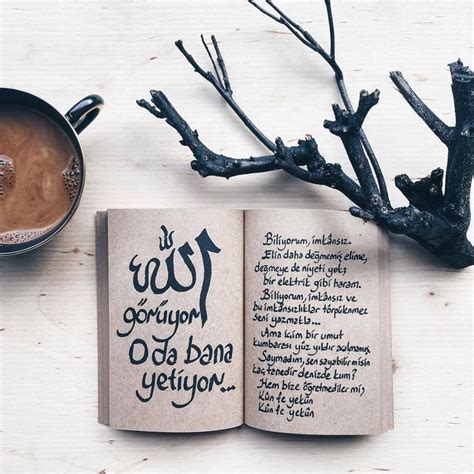 الله
görüyor
O da bana
yetiyor...
Biliyorum, imkânsız.
Elin daha değmemiş elime,
değmeye de niyeti yok;
bir elektrik gibi haram.
Biliyorum, imkânsız ve
bu imkânsızlıklar törpülenmez
seni yazmakla...
Ama kim bir umut
kumbarası yüz yıldır açılmamış.
Saymadım, sen sayabilir misin
kaç tanedir denizde kum?
Hem bize öğretmediler mi;
Kün fe yekûn
Kün fe yekûn